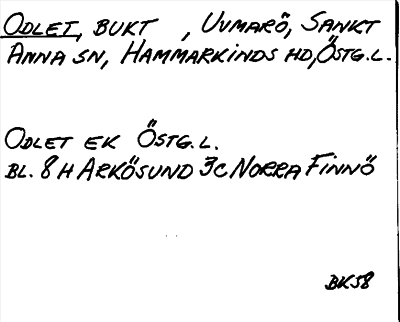 ODLET, BUKT , UVMARÖ, SANKT
ANNA SN, HAMMARKINDS HD, ÖSTG.L.
ODLET EK ÖSTG.L.
BL. 8 H ARKÖSUND 3C NORRA FINNÖ
BK58